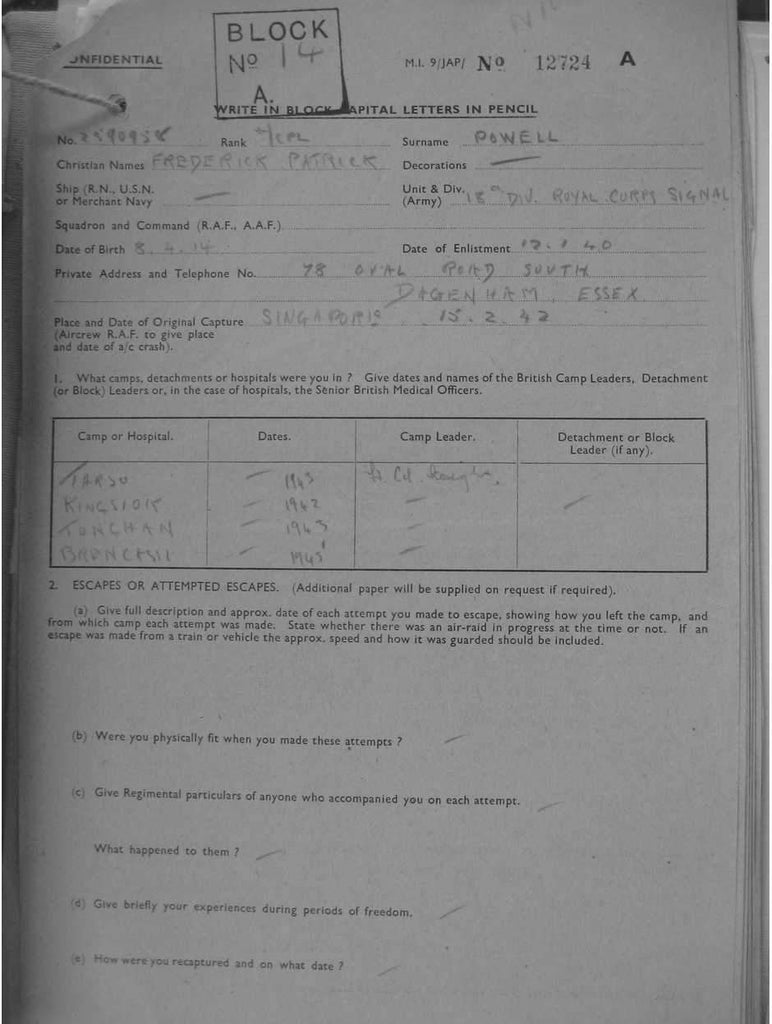 BLOCK
Nº 14
A.
CONFIDENTIAL
M.I. 9/JAP/ Nº 12724 A
WRITE IN BLOCK CAPITAL LETTERS IN PENCIL
No. Rank Surname POWELL
Christian Names FREDERICK PATRICK Decorations —
Ship (R.N., U.S.N. or Merchant Navy —
Unit & Div. (Army) 18th DIV. ROYAL CORPS SIGNAL
Squadron and Command (R.A.F., A.A.F.)
Date of Birth 8.4.14 Date of Enlistment 40
Private Address and Telephone No. 78 OVAL ROAD SOUTH
DAGENHAM, ESSEX
Place and Date of Original Capture SINGAPORE 15.2.42
(Aircrew R.A.F. to give place
and date of a/c crash).
1. What camps, detachments or hospitals were you in ? Give dates and names of the British Camp Leaders, Detachment
(or Block) Leaders or, in the case of hospitals, the Senior British Medical Officers.
Camp or Hospital. Dates. Camp Leader. Detachment or Block
Leader (if any).
TARSO — 1943 Lt Col.
— 1942 — —
TONCHAN — 1943 —
— 1945 —
2. ESCAPES OR ATTEMPTED ESCAPES. (Additional paper will be supplied on request if required).
(a) Give full description and approx. date of each attempt you made to escape, showing how you left the camp, and
from which camp each attempt was made. State whether there was an air-raid in progress at the time or not. If an
escape was made from a train or vehicle the approx. speed and how it was guarded should be included.
(b) Were you physically fit when you made these attempts ? —
(c) Give Regimental particulars of anyone who accompanied you on each attempt. —
What happened to them ? —
(d) Give briefly your experiences during periods of freedom. —
(e) How were you recaptured and on what date ? —